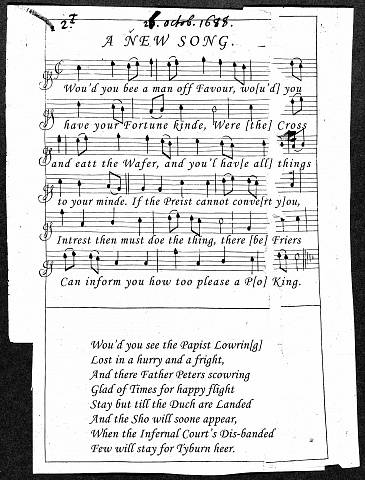 27
26. octob. 1688.
A NEW SONG.
Wou'd you bee a man off Favour, wo[u'd] you
have your Fortune kinde, Were [the] Cross
and eatt the Wafer, and you'l hav[e all] things
to your minde. If the Preist cannot conve[rt y]ou,
Intrest then must doe the thing, there [be] Friers
Can inform you how too please a P[o] King.
Wou'd you see the Papist Lowrin[g]
Lost in a hurry and a fright,
And there Father Peters scowring
Glad of Times for happy flight
Stay but till the Duch are Landed
And the Sho will soone appear,
When the Infernal Court's Dis-banded
Few will stay for Tyburn heer.